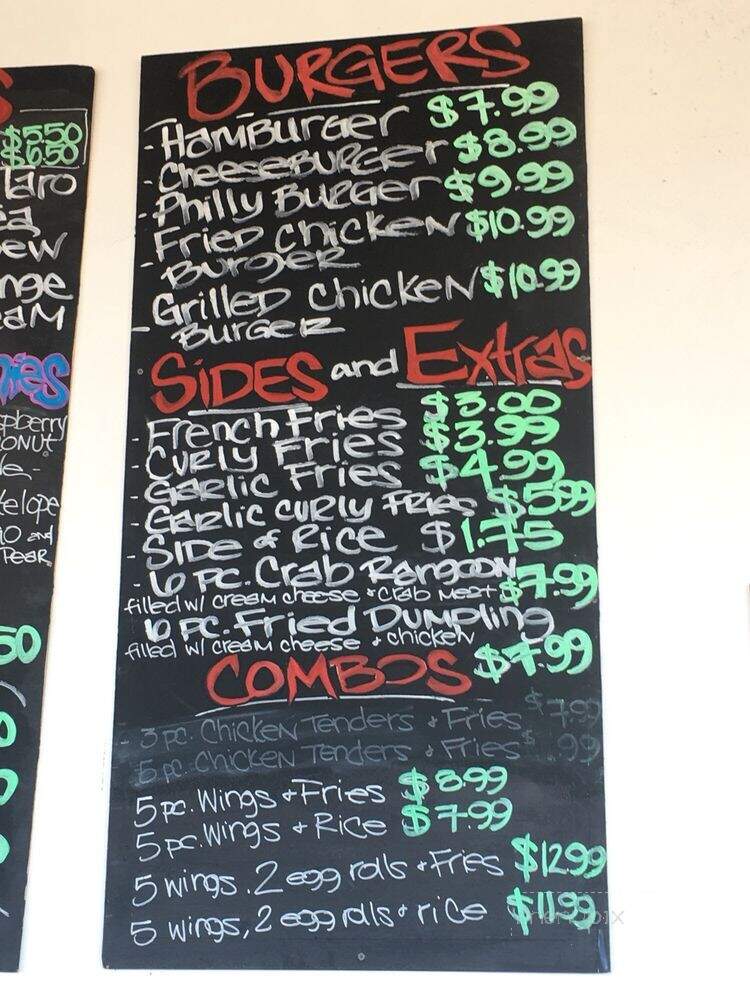 BURGERS
- HAMBURGER $7.99
- CHEESEBURGER $8.99
- PHILLY BURGER $9.99
- FRIED CHICKEN $10.99
BURGER
- GRILLED CHICKEN $10.99
BURGER
SIDES and Extras
- FRENCH FRIES $3.00
- CURLY FRIES $3.99
- GARLIC FRIES $4.99
- GARLIC CURLY FRIES $5.99
- SIDE of RICE $1.75
- 6 PC. CRAB RANGOON
filled w/ cream cheese & crab meat $7.99
6 PC. FRIED DUMPLING
filled w/ cream cheese & chicken $7.99
COMBOS
- 3 pc. Chicken Tenders & Fries $7.99
5 pc. Chicken Tenders & Fries $ .99
5 pc. Wings & Fries $8.99
5 pc. Wings & Rice $7.99
5 wings, 2 egg rolls & Fries $12.99
5 wings, 2 egg rolls & rice $11.99
$5.50
$6.50